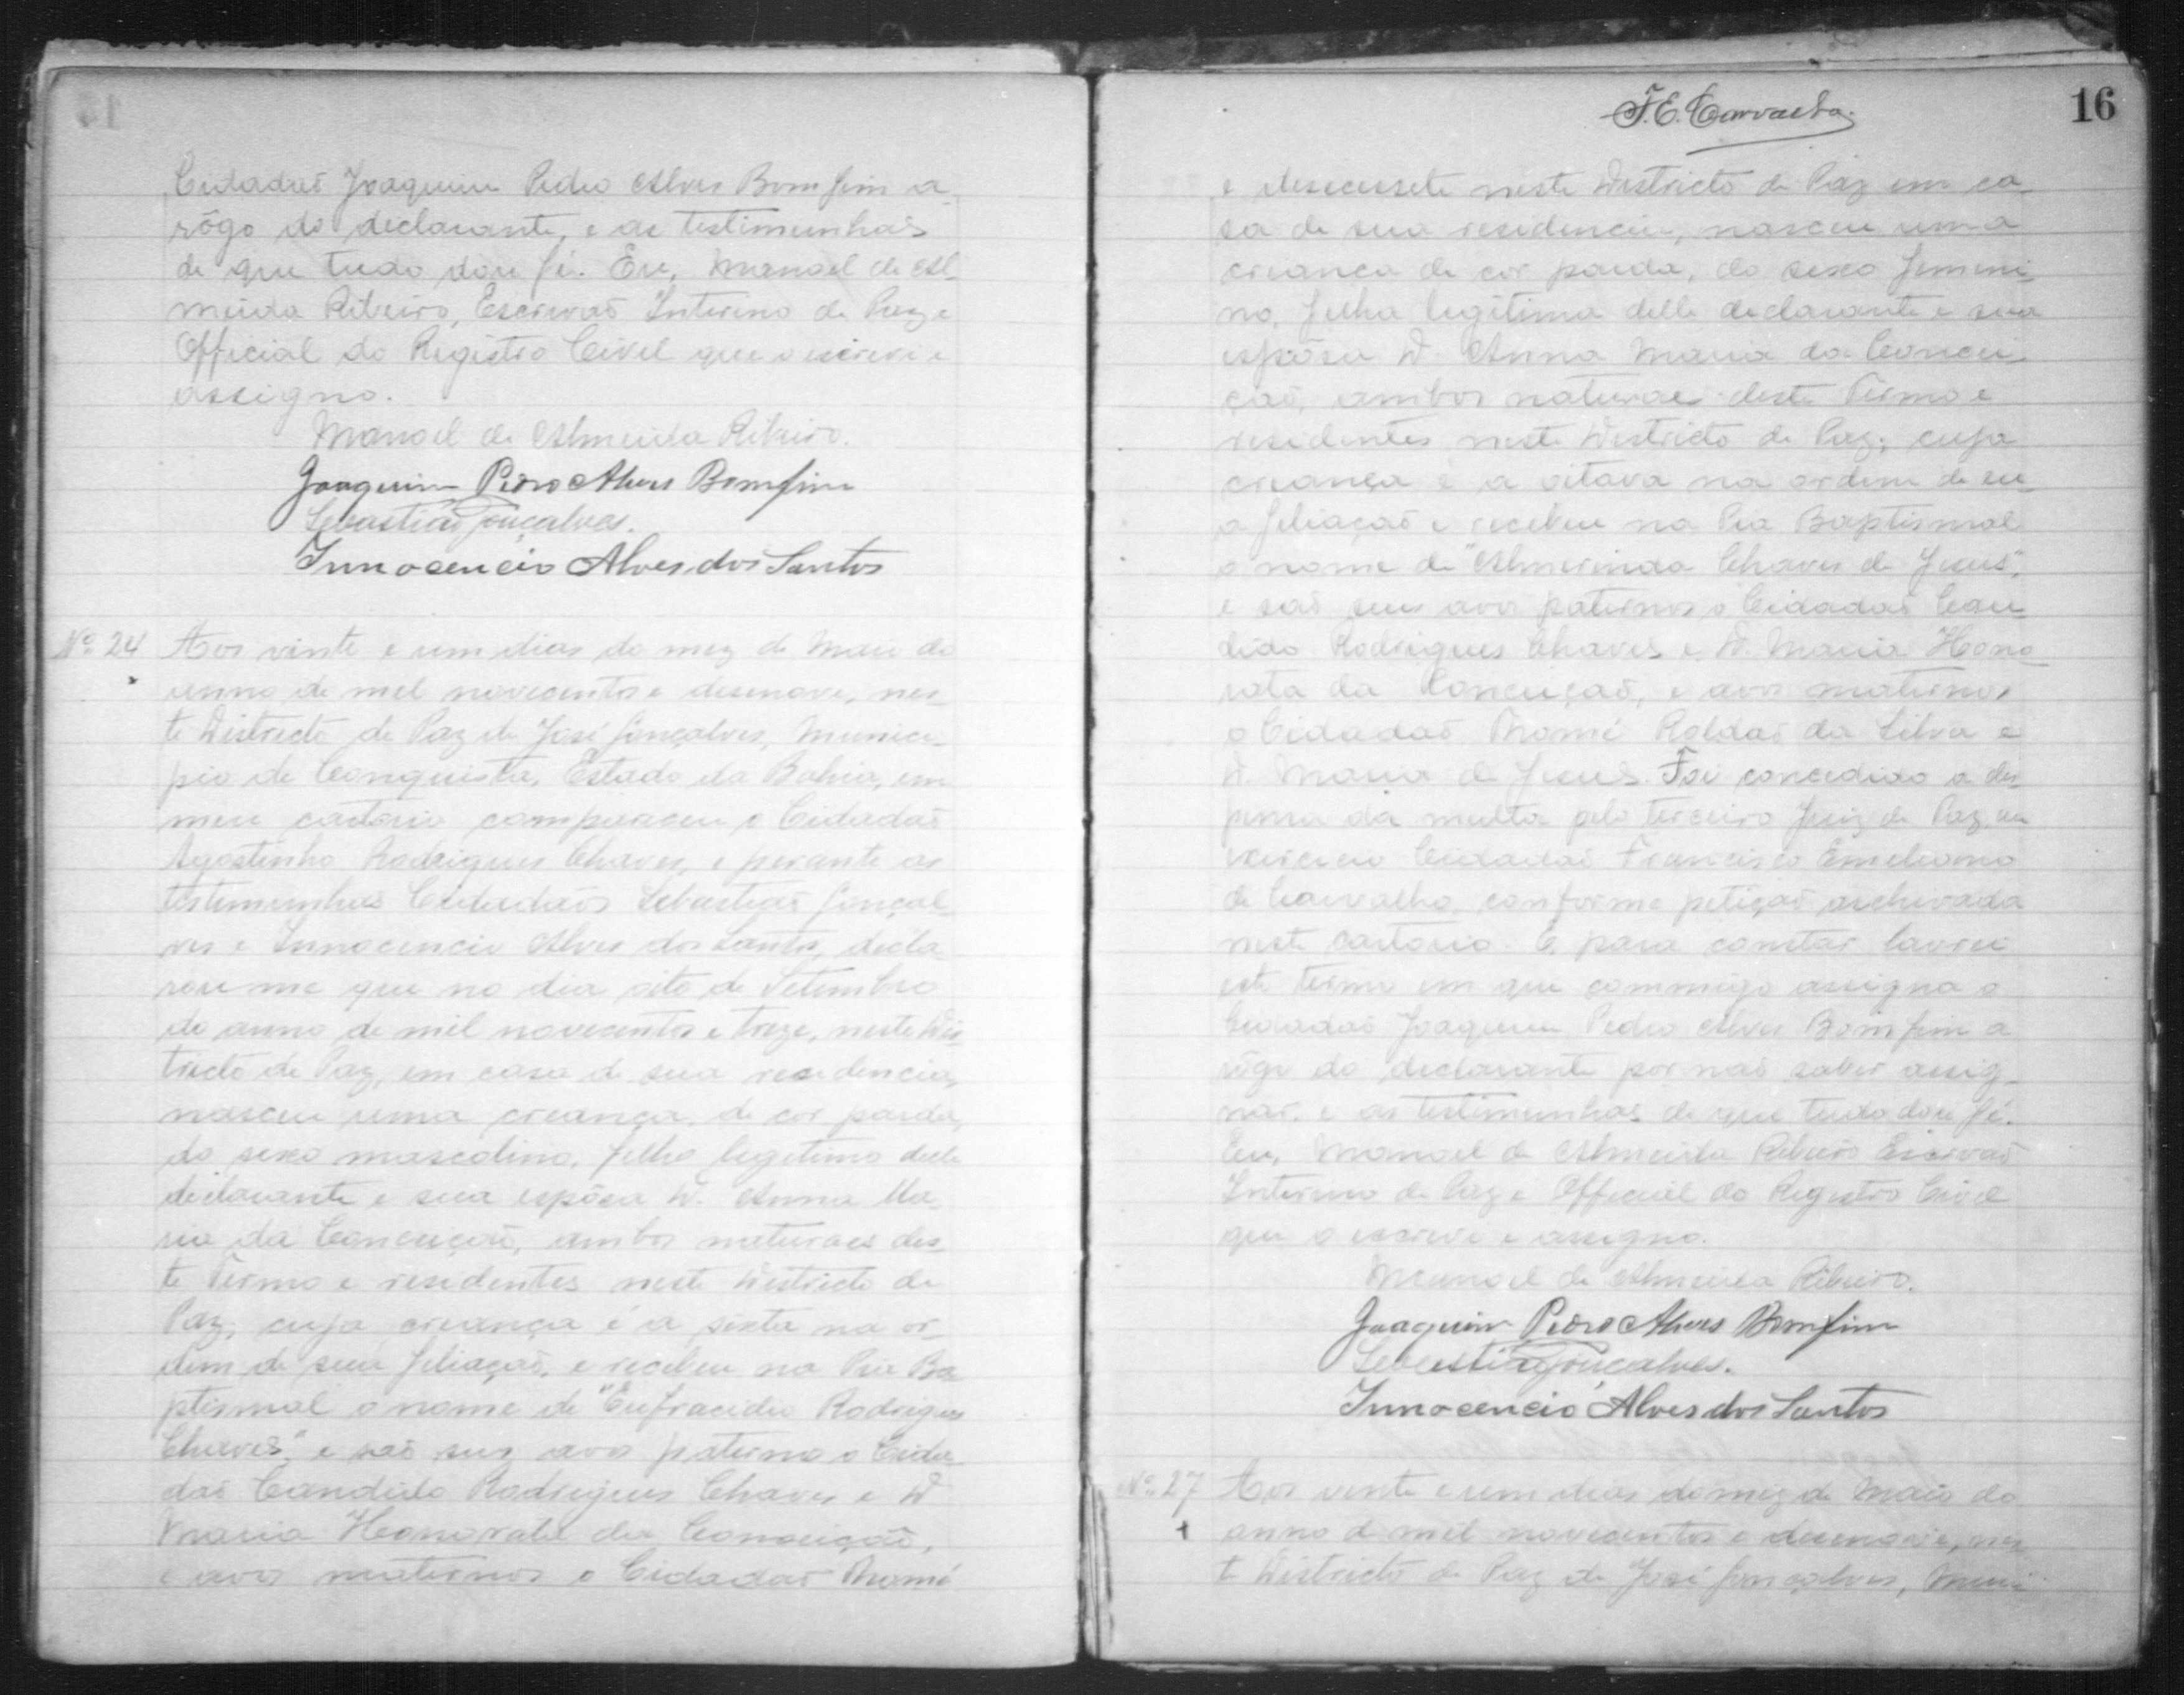 Cidadaõ Joaquim Pedro Alves Bomfim a
rôgo do declarante, e as testimunhas
de que tudo dou fé. Eu, Manoel de Al-
meida Ribeiro, Escrivaõ Interino de Paz e
Official do Registro Civel que o escrevi e
assigno.
Manoel de Almeida Ribeiro.
Joaquim Pedro Alves Bomfim
Sebastião Gonçalves.
Innocencio Alves dos Santos
Nº 24 Aos vinte e um dias do mez de Maio do
anno de mil novecentos e desenove, nes-
te Districto de Paz de José Gonçalves, Munici-
pio de Conquista, Estado da Bahia, em
meu cartorio compareceu o Cidadaõ
Agostinho Rodrigues Chaves, e perante as
testimunhas Cidadãos Sebastiaõ Gonçal-
ves e Innocencio Alves dos Santos, decla-
rou me que no dia oito de Setembro
do anno de mil novecentos e treze, neste Dis-
tricto de Paz, em casa de sua residencia,
nasceu uma creança, de cor parda,
do sexo mascolino, filho legitimo delle
declarante e sua espôsa D. Anna Ma-
ria da Conceiçaõ, ambos naturaes des-
te Termo e residentes neste Districto de
Paz, cuja creança é a sixta na or-
dem de sua filiaçaõ, e recebeu na Pia Ba-
ptismal o nome de "Eufracidio Rodrigues
Chaves" e saõ seus avos paterno o Cida-
daõ Candido Rodrigues Chaves e D.
Maria Honorata da Conceiçaõ,
e avos maternos o Cidadaõ Thomé
F. E. Carvalho.
16
e desecessete neste Districto de Paz em ca-
sa de sua residencia, nasceu uma
creanca de cor parda, do sexo femeni-
no, filha legitima delle declarante e sua
espôsa D. Anna Maria da Concei-
çaõ, ambos naturaes deste Termo e
residentes neste Districto de Paz, cuja
creança é a oitava na ordem de su-
a filiaçaõ e recebeu na Pia Baptismal
o nome de "Almerinda Chaves de Jesus",
e saõ seus avos paternos o Cidadaõ Can-
dido Rodrigues Chaves e D. Maria Hono-
rata da Conceiçaõ, e avos maternos
o Cidadaõ Thomé Roldaõ da Silva e
D. Maria de Jesus. Foi concedido a dis-
pensa da multa pelo terceiro Juiz de Paz, em
exercicio Cidadaõ Francisco Emeliano
de Carvalho, conforme petiçaõ archivada
neste cartorio. E para constar lavrei
este termo em que commigo assigna o
Cidadaõ Joaquim Pedro Alves Bomfim a
rôgo do declarante por naõ saber assig-
nar, e as testimunhas de que tudo dou fé.
Eu, Manoel de Almeida Ribeiro Escrivaõ
Interino de Paz e Official do Registro Civel
que o escrevi e assigno.
Manoel de Almeida Ribeiro.
Joaquim Pedro Alves Bomfim
Sebastião Gonçalves.
Innocencio Alves dos Santos
Nº 27 Aos vinte e um dias do mez de Maio do
anno de mil novecentos e desenove, nes-
te Districto de Paz de José Gonçalves, Muni-